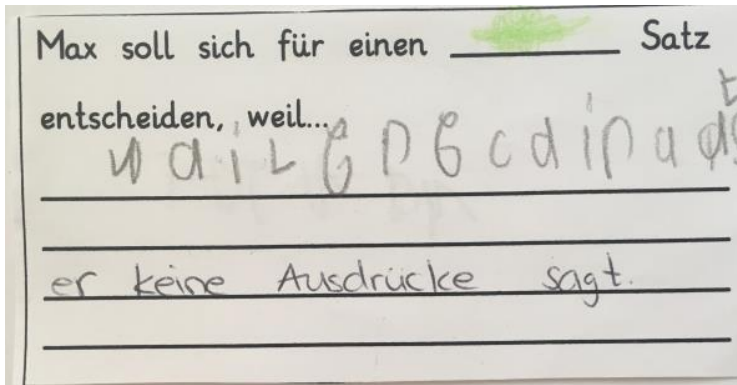 Max soll sich für einen ________ Satz
entscheiden, weil...
er keine Ausdrücke sagt.